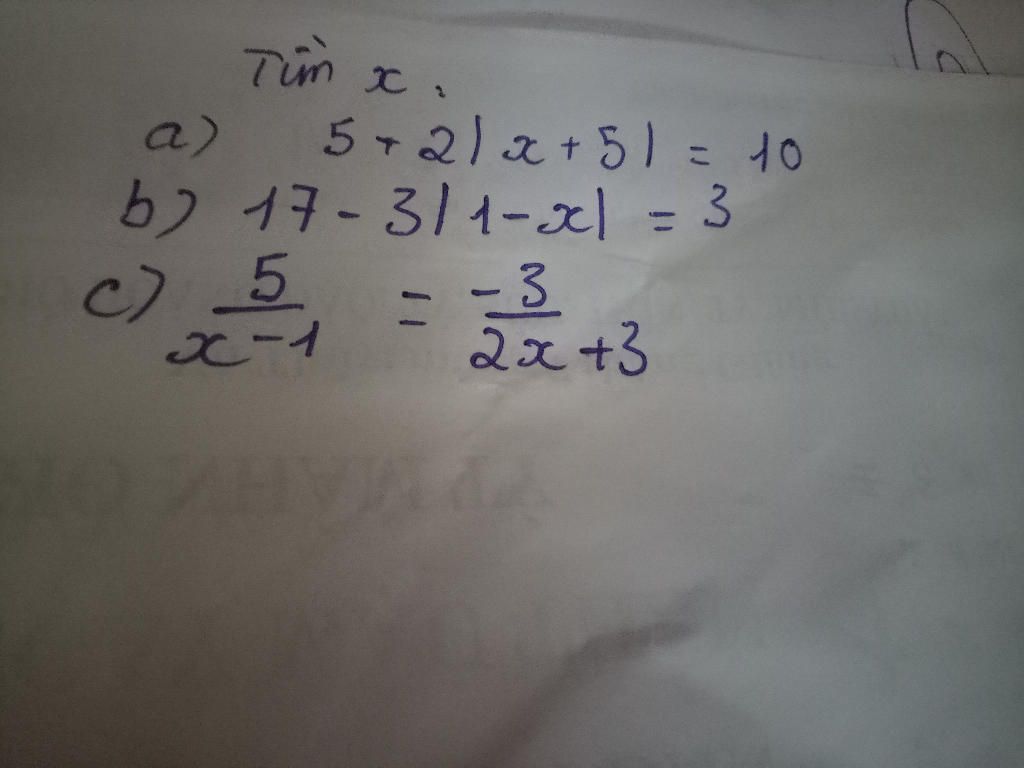 Tìm x.
a) 5 + 2|x + 5| = 10
b) 17 - 3|1 - x| = 3
c) 5/(x - 1) = -3/(2x + 3)